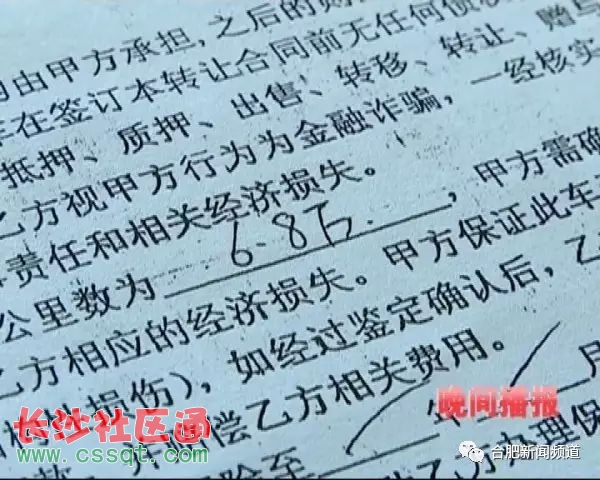 由甲方承担,之后的
在签订本转让合同前无任何债
抵押、质押、出售、转移、转让、赠与
乙方视甲方行为为金融诈骗,一经核实
责任和相关经济损失。
公里数为 6.8万 ,甲方需确
乙方相应的经济损失。甲方保证此车
损伤),如经过鉴定确认后,乙
偿乙方相关费用。
年 月
至
乙方办理保
晚间播报
长沙社区通
www.cssqt.com
合肥新闻频道